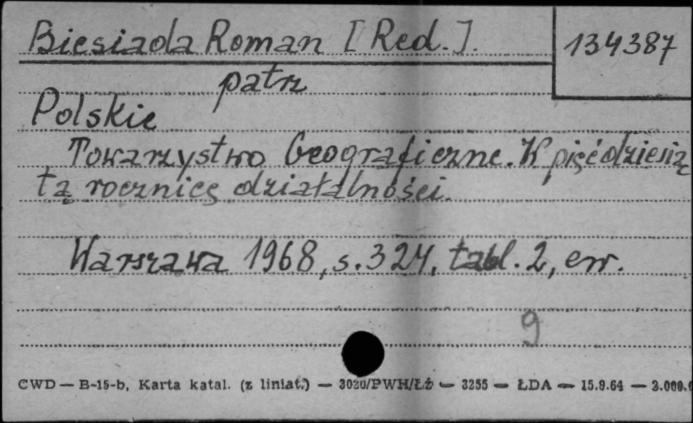 Biesiada Roman [Red.].
134387
patrz
Polskie
Towarzystwo Geograficzne. W pięćdziesią
tą rocznicę działalności.
Warszawa 1968, s. 324, tabl. 2, err.
9
CWD — B-15-b, Karta katal. (z liniat.) — 3020/PWH/ŁŻ — 3255 — ŁDA — 15.9.64 — 3.000.0